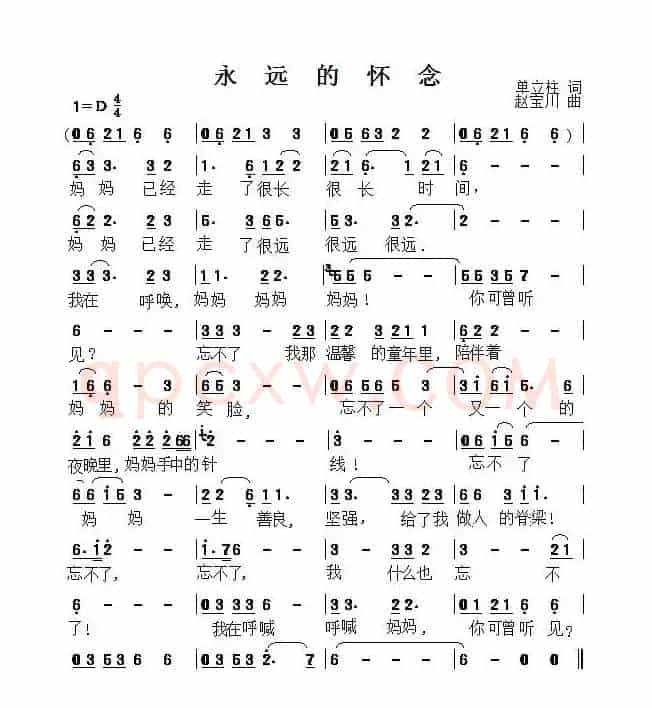 永远的怀念
单立柱 词
1=D 4/4
赵宝川 曲
(06 21 6 6 | 06 21 3 3 | 05 63 2 2 | 05 6 6 6)
63 3· 32 | 1· 6 12 2 | 21 6· 1 21 | 6 - - - |
妈妈 已经 走 了很长 很 长 时 间，
62 2· 23 | 5· 3 365· | 53· 32· | 2 - - - |
妈妈已经 走 了很远 很远 很远.
33 3· 23 | 11· 22· | 55 - - | 55 35 7 |
我在 呼唤，妈妈 妈妈 妈妈！ 你可曾听
6 - - - | 333 - 23 | 22 3 211 | 622 - - |
见？ 忘不了 我那 温馨 的童年里，陪伴着
166 - 3 | 653 - - | 05 665 6 3 | 31 61· 6 |
妈妈 的 笑脸， 忘不了一个 又一个 的
216 22 266 | 1 - - - | 3 - - - | 06 156 |
夜晚里，妈妈手中的针 线！ 忘不了
66 153 - | 22 6 01· | 35· 366· | 123 11· |
妈 妈 一生 善良， 坚强， 给了我 做人 的脊梁！
6· 12 - - | 1· 76 - - | 3 3 33 | 3 - - 21 |
忘不了， 忘不了， 我 什么也 忘 不
6 - - - | 03 33 23 | 33· 22· | 01 21 67 |
了！ 我在呼喊 呼喊 妈妈， 你可曾听见？
03 53 03 53 | 03 53 2· 7 | 6 - - - | 6 - 0 0 ‖
qpcxw.com